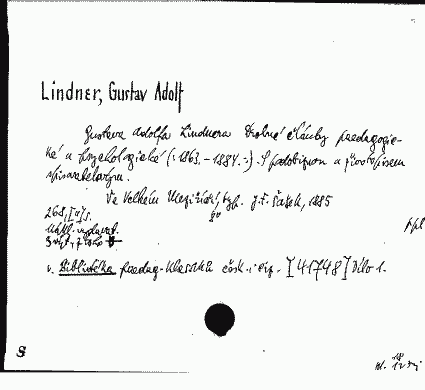 Lindner, Gustav Adolf
Gustava Adolfa Lindnera Drobné články paedagogic-
ké a psychologické (:1863.-1884.:) S podobiznou a životopisem
spisovatelovým.
Ve Velkém Meziříčí, J. F. Šašek, 1885
268, s.
v. Bibliotéka paedag. klassiků česk. i ciz. [41748] Dílo 1.